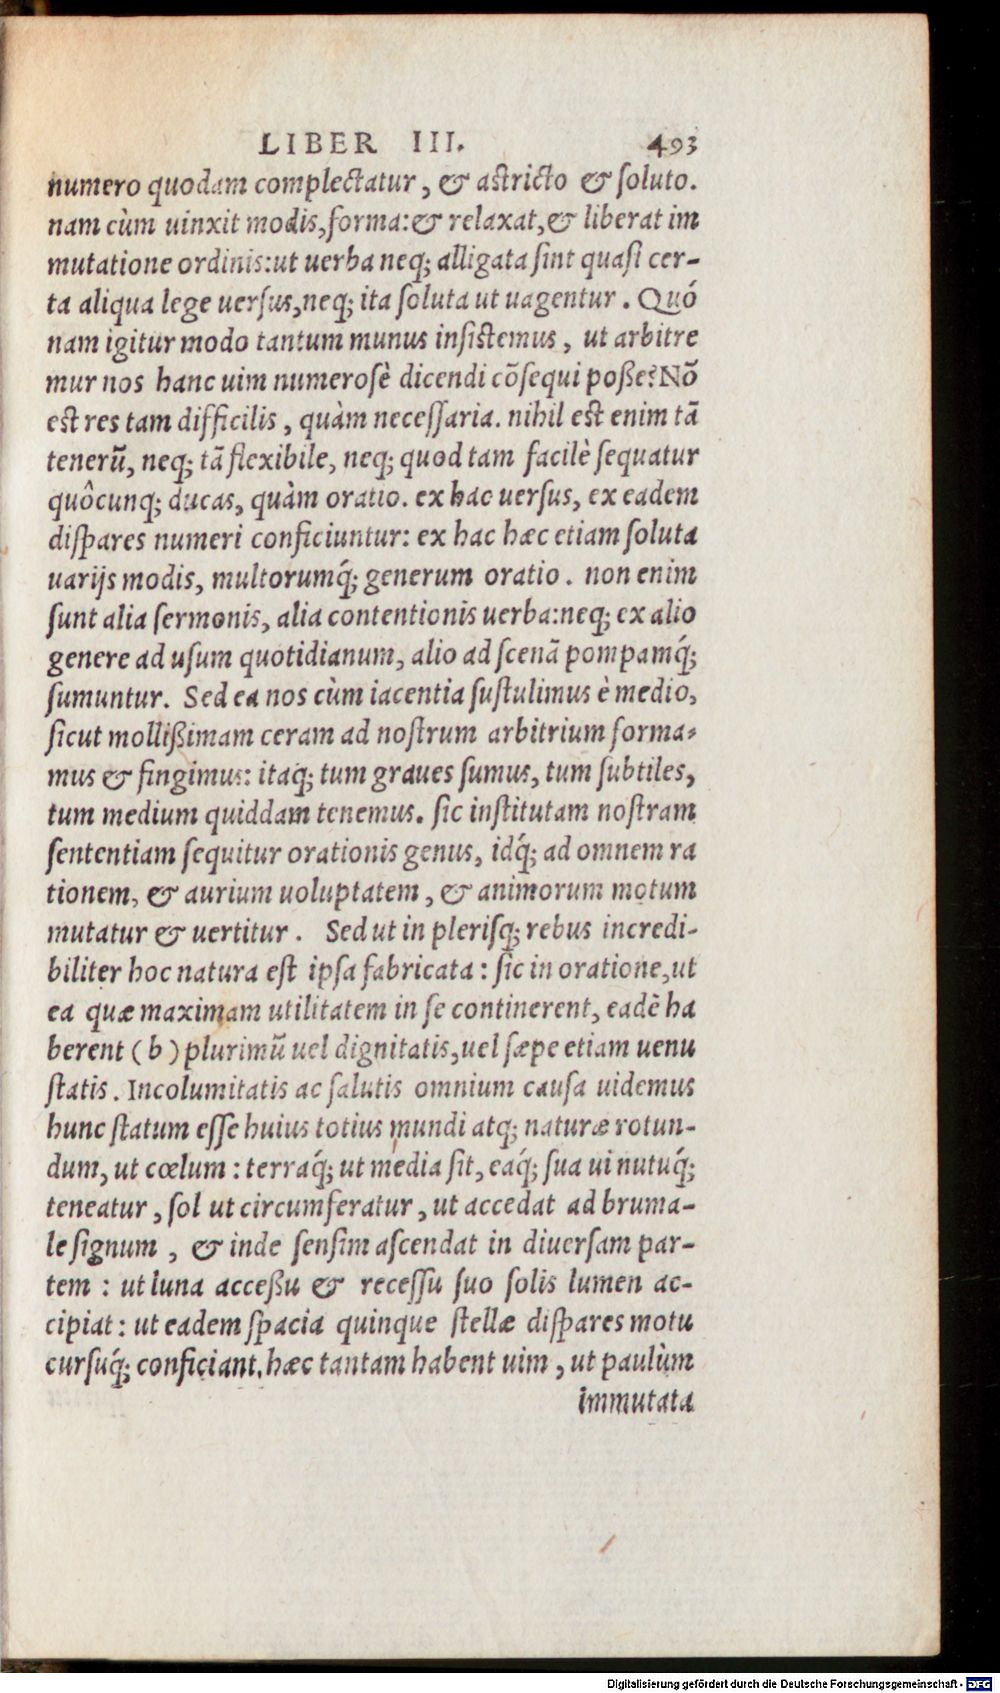 LIBER III. 493
numero quodam complectatur, & astricto & soluto.
nam cùm uinxit modis, forma: & relaxat, & liberat im
mutatione ordinis: ut uerba neq; alligata sint quasi cer-
ta aliqua lege uersus, neq; ita soluta ut uagentur. Quó
nam igitur modo tantum munus insistemus, ut arbitre
mur nos hanc uim numerosè dicendi cõsequi poße? Nõ
est res tam difficilis, quàm necessaria. nihil est enim tã
tenerũ, neq; tã flexibile, neq; quod tam facilè sequatur
quôcunq; ducas, quàm oratio. ex hac uersus, ex eadem
dispares numeri conficiuntur: ex hac hæc etiam soluta
uarijs modis, multorumq́; generum oratio. non enim
sunt alia sermonis, alia contentionis uerba: neq; ex alio
genere ad usum quotidianum, alio ad scenã pompamq́;
sumuntur. Sed ea nos cùm iacentia sustulimus è medio,
sicut mollißimam ceram ad nostrum arbitrium forma-
mus & fingimus: itaq; tum graues sumus, tum subtiles,
tum medium quiddam tenemus. sic institutam nostram
sententiam sequitur orationis genus, idq́; ad omnem ra
tionem, & aurium uoluptatem, & animorum motum
mutatur & uertitur. Sed ut in plerisq; rebus incredi-
biliter hoc natura est ipsa fabricata: sic in oratione, ut
ea quæ maximam utilitatem in se continerent, eadẽ ha
berent (b) plurimũ uel dignitatis, uel sæpe etiam uenu
statis. Incolumitatis ac salutis omnium causa uidemus
hunc statum esse huius totius mundi atq; naturæ rotun-
dum, ut cœlum: terraq́; ut media sit, eaq́; sua ui nutuq́;
teneatur, sol ut circumferatur, ut accedat ad bruma-
le signum, & inde sensim ascendat in diuersam par-
tem: ut luna acceßu & recessu suo solis lumen ac-
cipiat: ut eadem spacia quinque stellæ dispares motu
cursuq́; conficiant. hæc tantam habent uim, ut paulùm
immutata
Digitalisierung gefördert durch die Deutsche Forschungsgemeinschaft - DFG